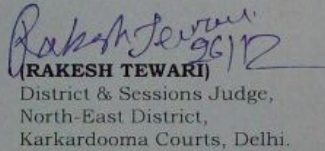 Rakesh Tewari
26/12
(RAKESH TEWARI)
District & Sessions Judge,
North-East District,
Karkardooma Courts, Delhi.